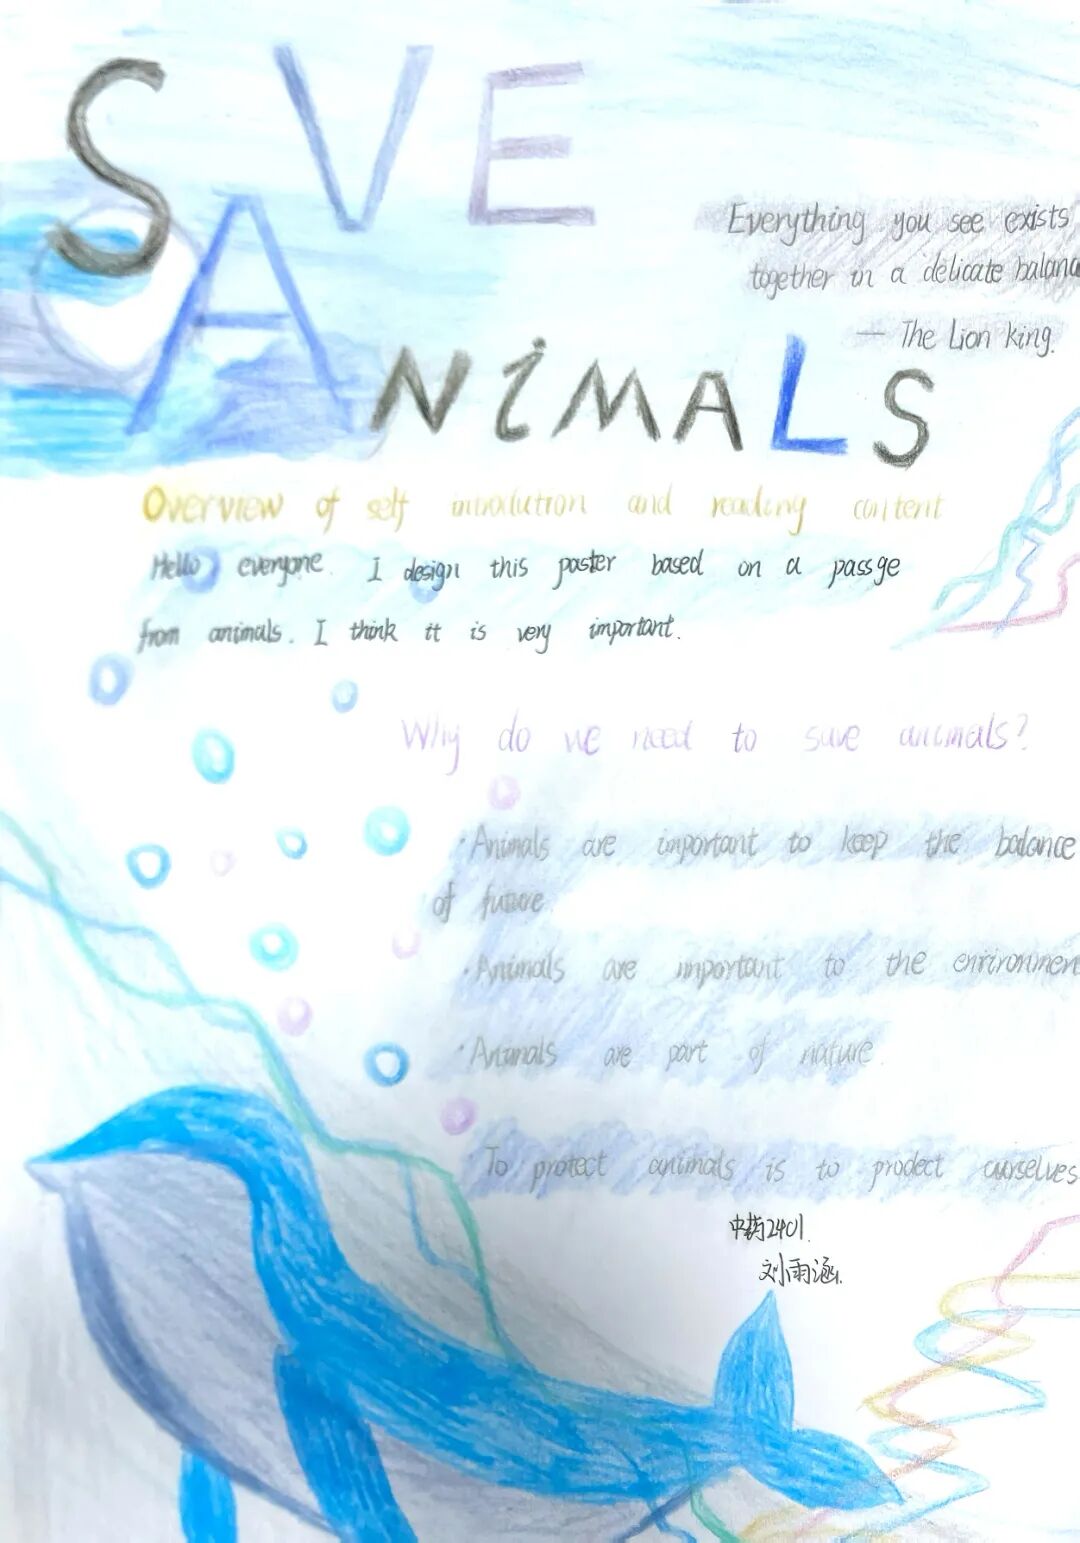 SAVE
ANIMALS
Everything you see exists
together in a delicate balance
— The Lion King.
Overview of self introlution and reading content
Hello everyone. I design this paster based on a passge
from animals. I think it is very important.
Why do we need to save animals?
·Animals are important to keep the balance
of future
·Animals are important to the enrironmen
·Animals are part of nature.
To protect animals is to prodect ourselves
中药2401.
刘雨涵.